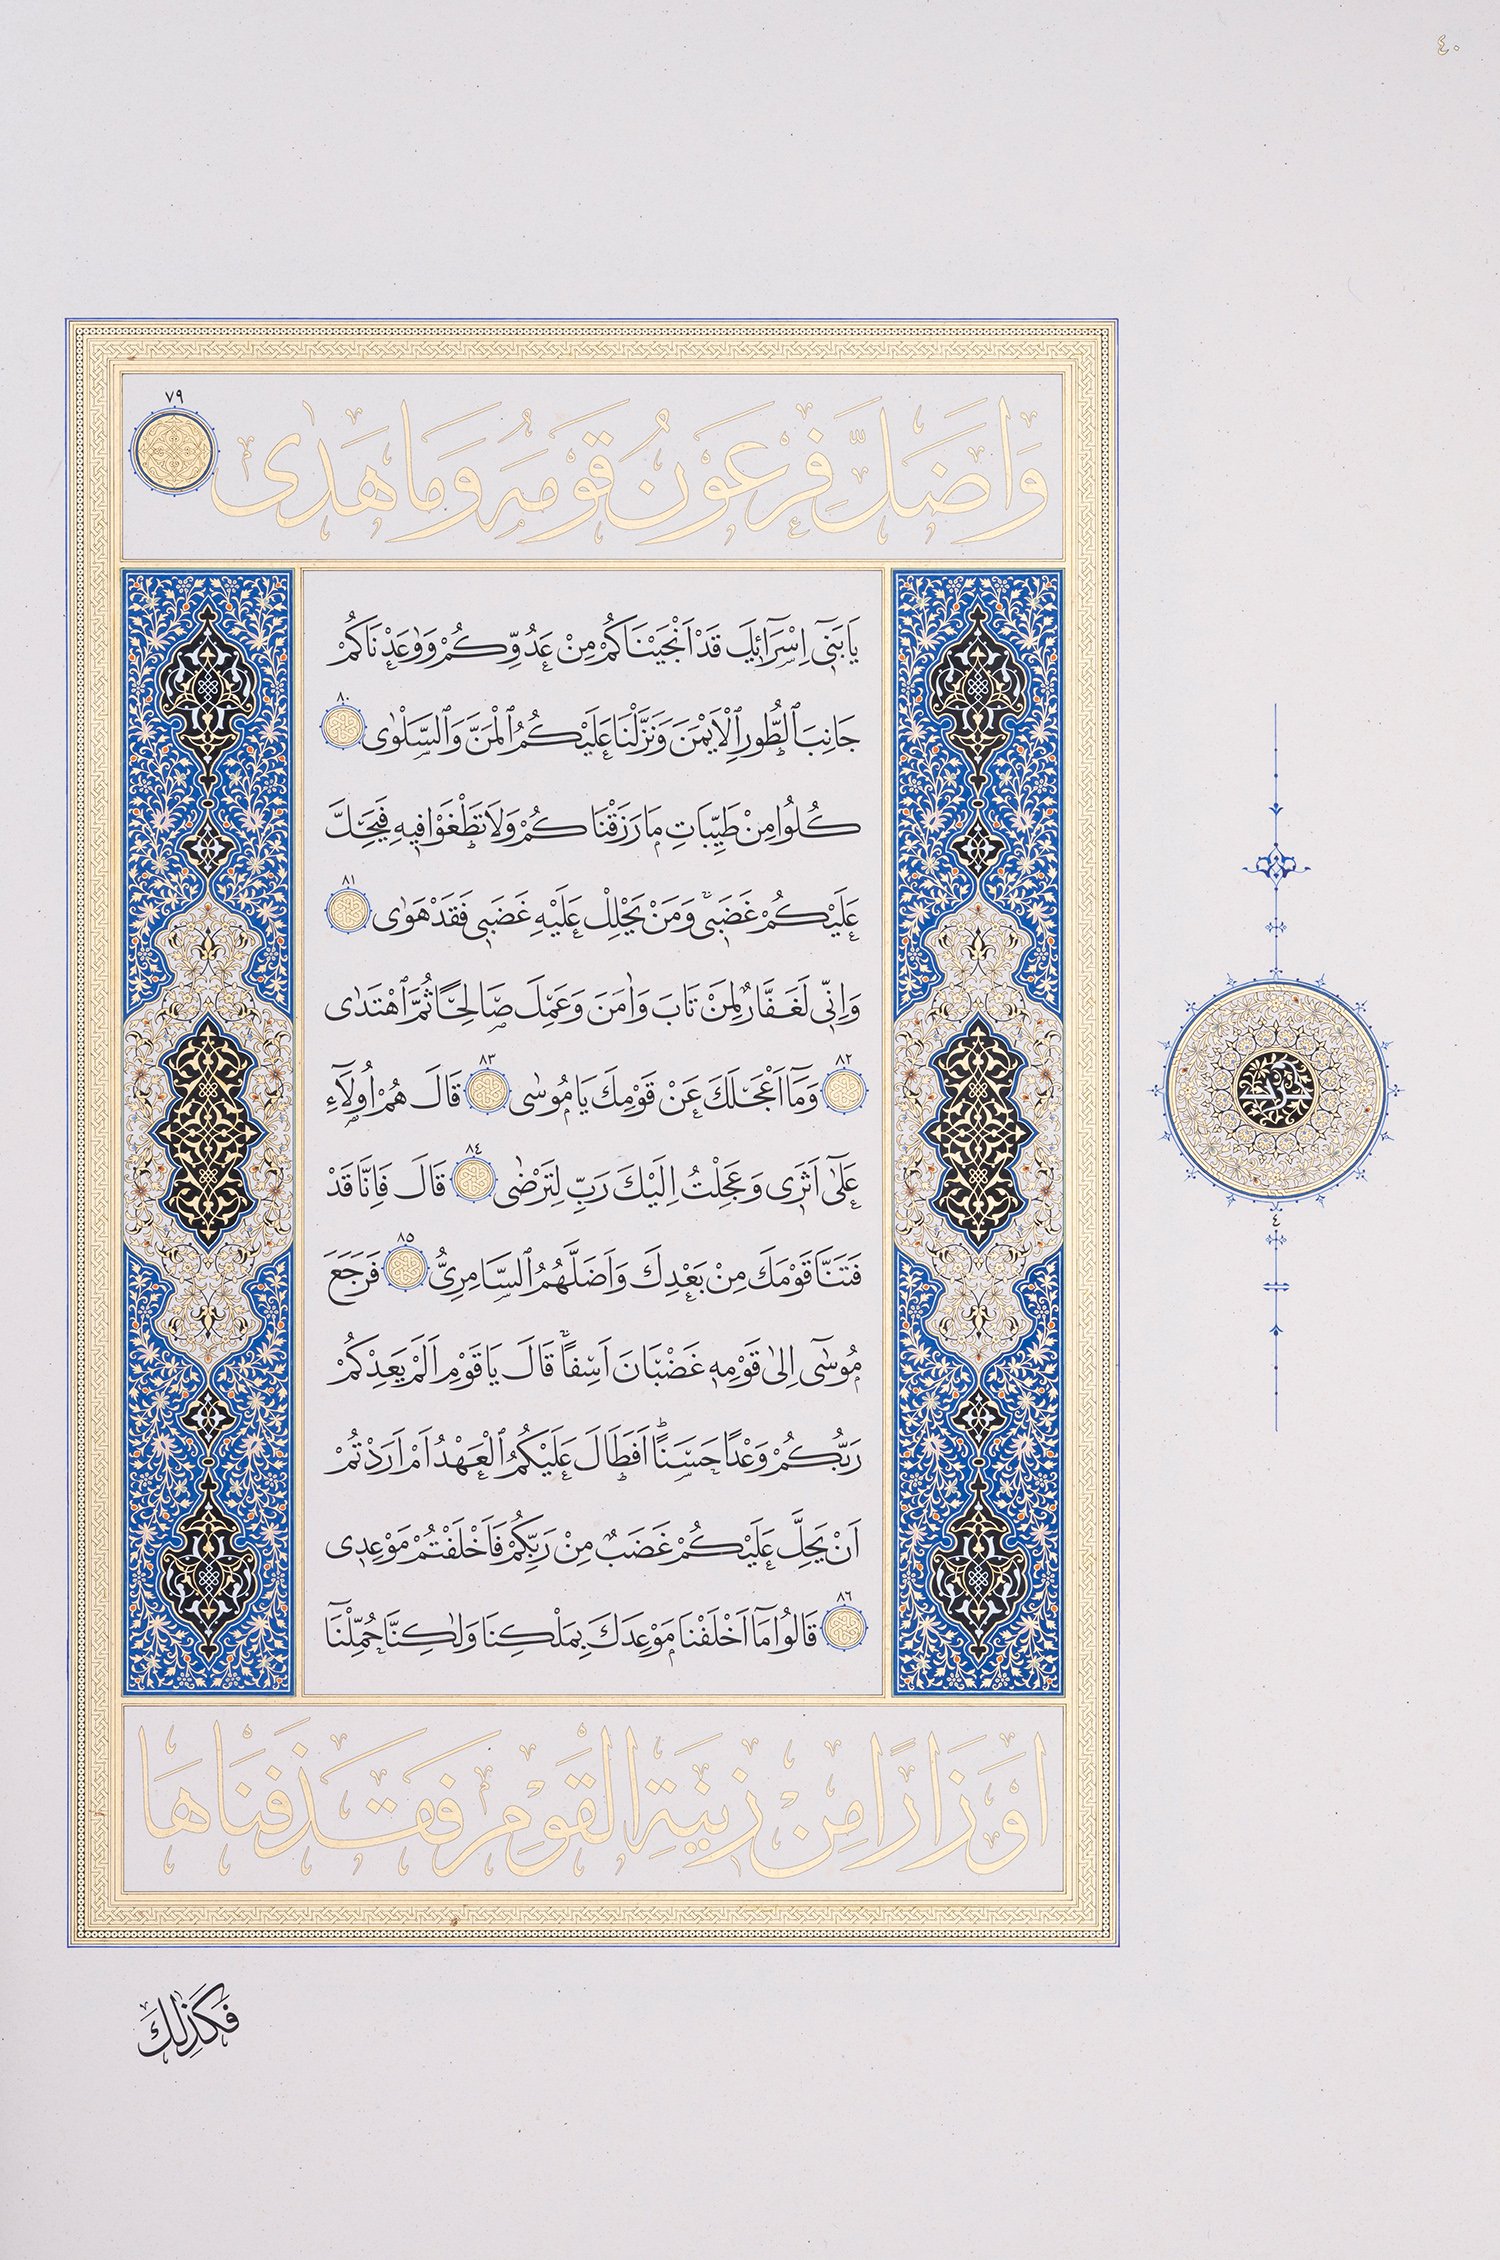 ٤٠
وَاَضَلَّ فِرْعَوْنُ قَوْمَهُ وَمَا هَدٰى ٧٩
يَا بَنٓى اِسْرَٓائٖلَ قَدْ اَنْجَيْنَاكُمْ مِنْ عَدُوِّكُمْ وَوٰعَدْنَاكُمْ
جَانِبَ ٱلطُّورِ ٱلْاَيْمَنَ وَنَزَّلْنَا عَلَيْكُمُ ٱلْمَنَّ وَٱلسَّلْوٰى ٨٠
كُلُوا مِنْ طَيِّبَاتِ مَا رَزَقْنَاكُمْ وَلَا تَطْغَوْا فٖيهِ فَيَحِلَّ
عَلَيْكُمْ غَضَبٖى وَمَنْ يَحْلِلْ عَلَيْهِ غَضَبٖى فَقَدْ هَوٰى ٨١
وَاِنّٖى لَغَفَّارٌ لِمَنْ تَابَ وَاٰمَنَ وَعَمِلَ صَالِحًا ثُمَّ ٱهْتَدٰى
٨٢ وَمَٓا اَعْجَلَكَ عَنْ قَوْمِكَ يَا مُوسٰى ٨٣ قَالَ هُمْ اُولَٓاءِ
عَلٰٓى اَثَرٖى وَعَجِلْتُ اِلَيْكَ رَبِّ لِتَرْضٰى ٨٤ قَالَ فَاِنَّا قَدْ
فَتَنَّا قَوْمَكَ مِنْ بَعْدِكَ وَاَضَلَّهُمُ ٱلسَّامِرِىُّ ٨٥ فَرَجَعَ
مُوسٰٓى اِلٰى قَوْمِهٖ غَضْبَانَ اَسِفًا قَالَ يَا قَوْمِ اَلَمْ يَعِدْكُمْ
رَبُّكُمْ وَعْدًا حَسَنًا اَفَطَالَ عَلَيْكُمُ ٱلْعَهْدُ اَمْ اَرَدْتُمْ
اَنْ يَحِلَّ عَلَيْكُمْ غَضَبٌ مِنْ رَبِّكُمْ فَاَخْلَفْتُمْ مَوْعِدٖى
٨٦ قَالُوا مَٓا اَخْلَفْنَا مَوْعِدَكَ بِمَلْكِنَا وَلٰكِنَّا حُمِّلْنَٓا
اَوْزَارًا مِنْ زٖينَةِ الْقَوْمِ فَقَذَفْنَاهَا
فَكَذٰلِكَ
٤